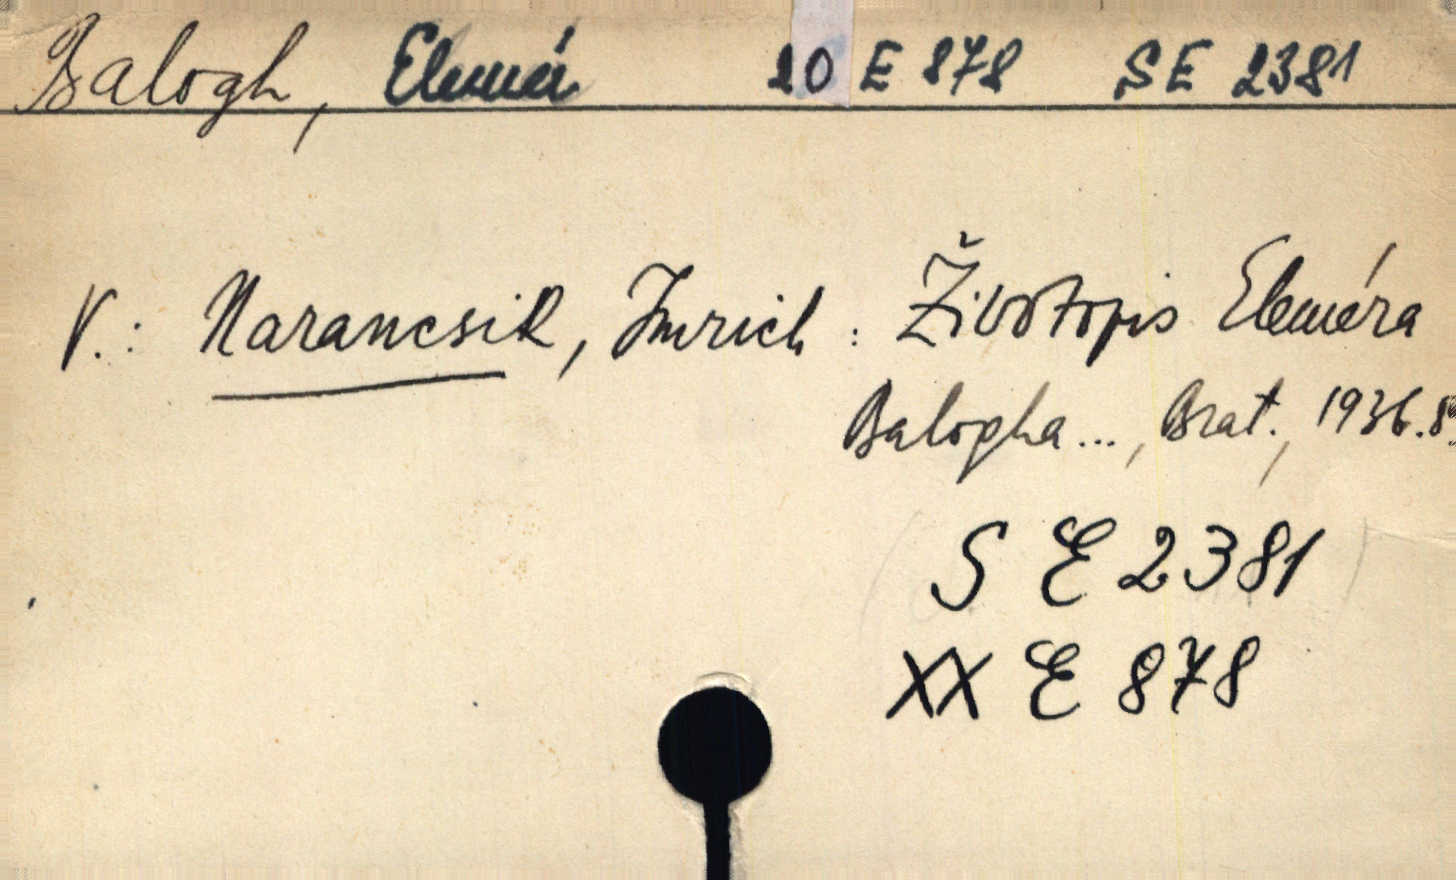 Balogh, Elemér 20 E 878 SE 2381
V.: Narancsik, Imrich: Životopis Eleméra
Balogha..., Brat., 1936.8°
S E 2381
XX E 878